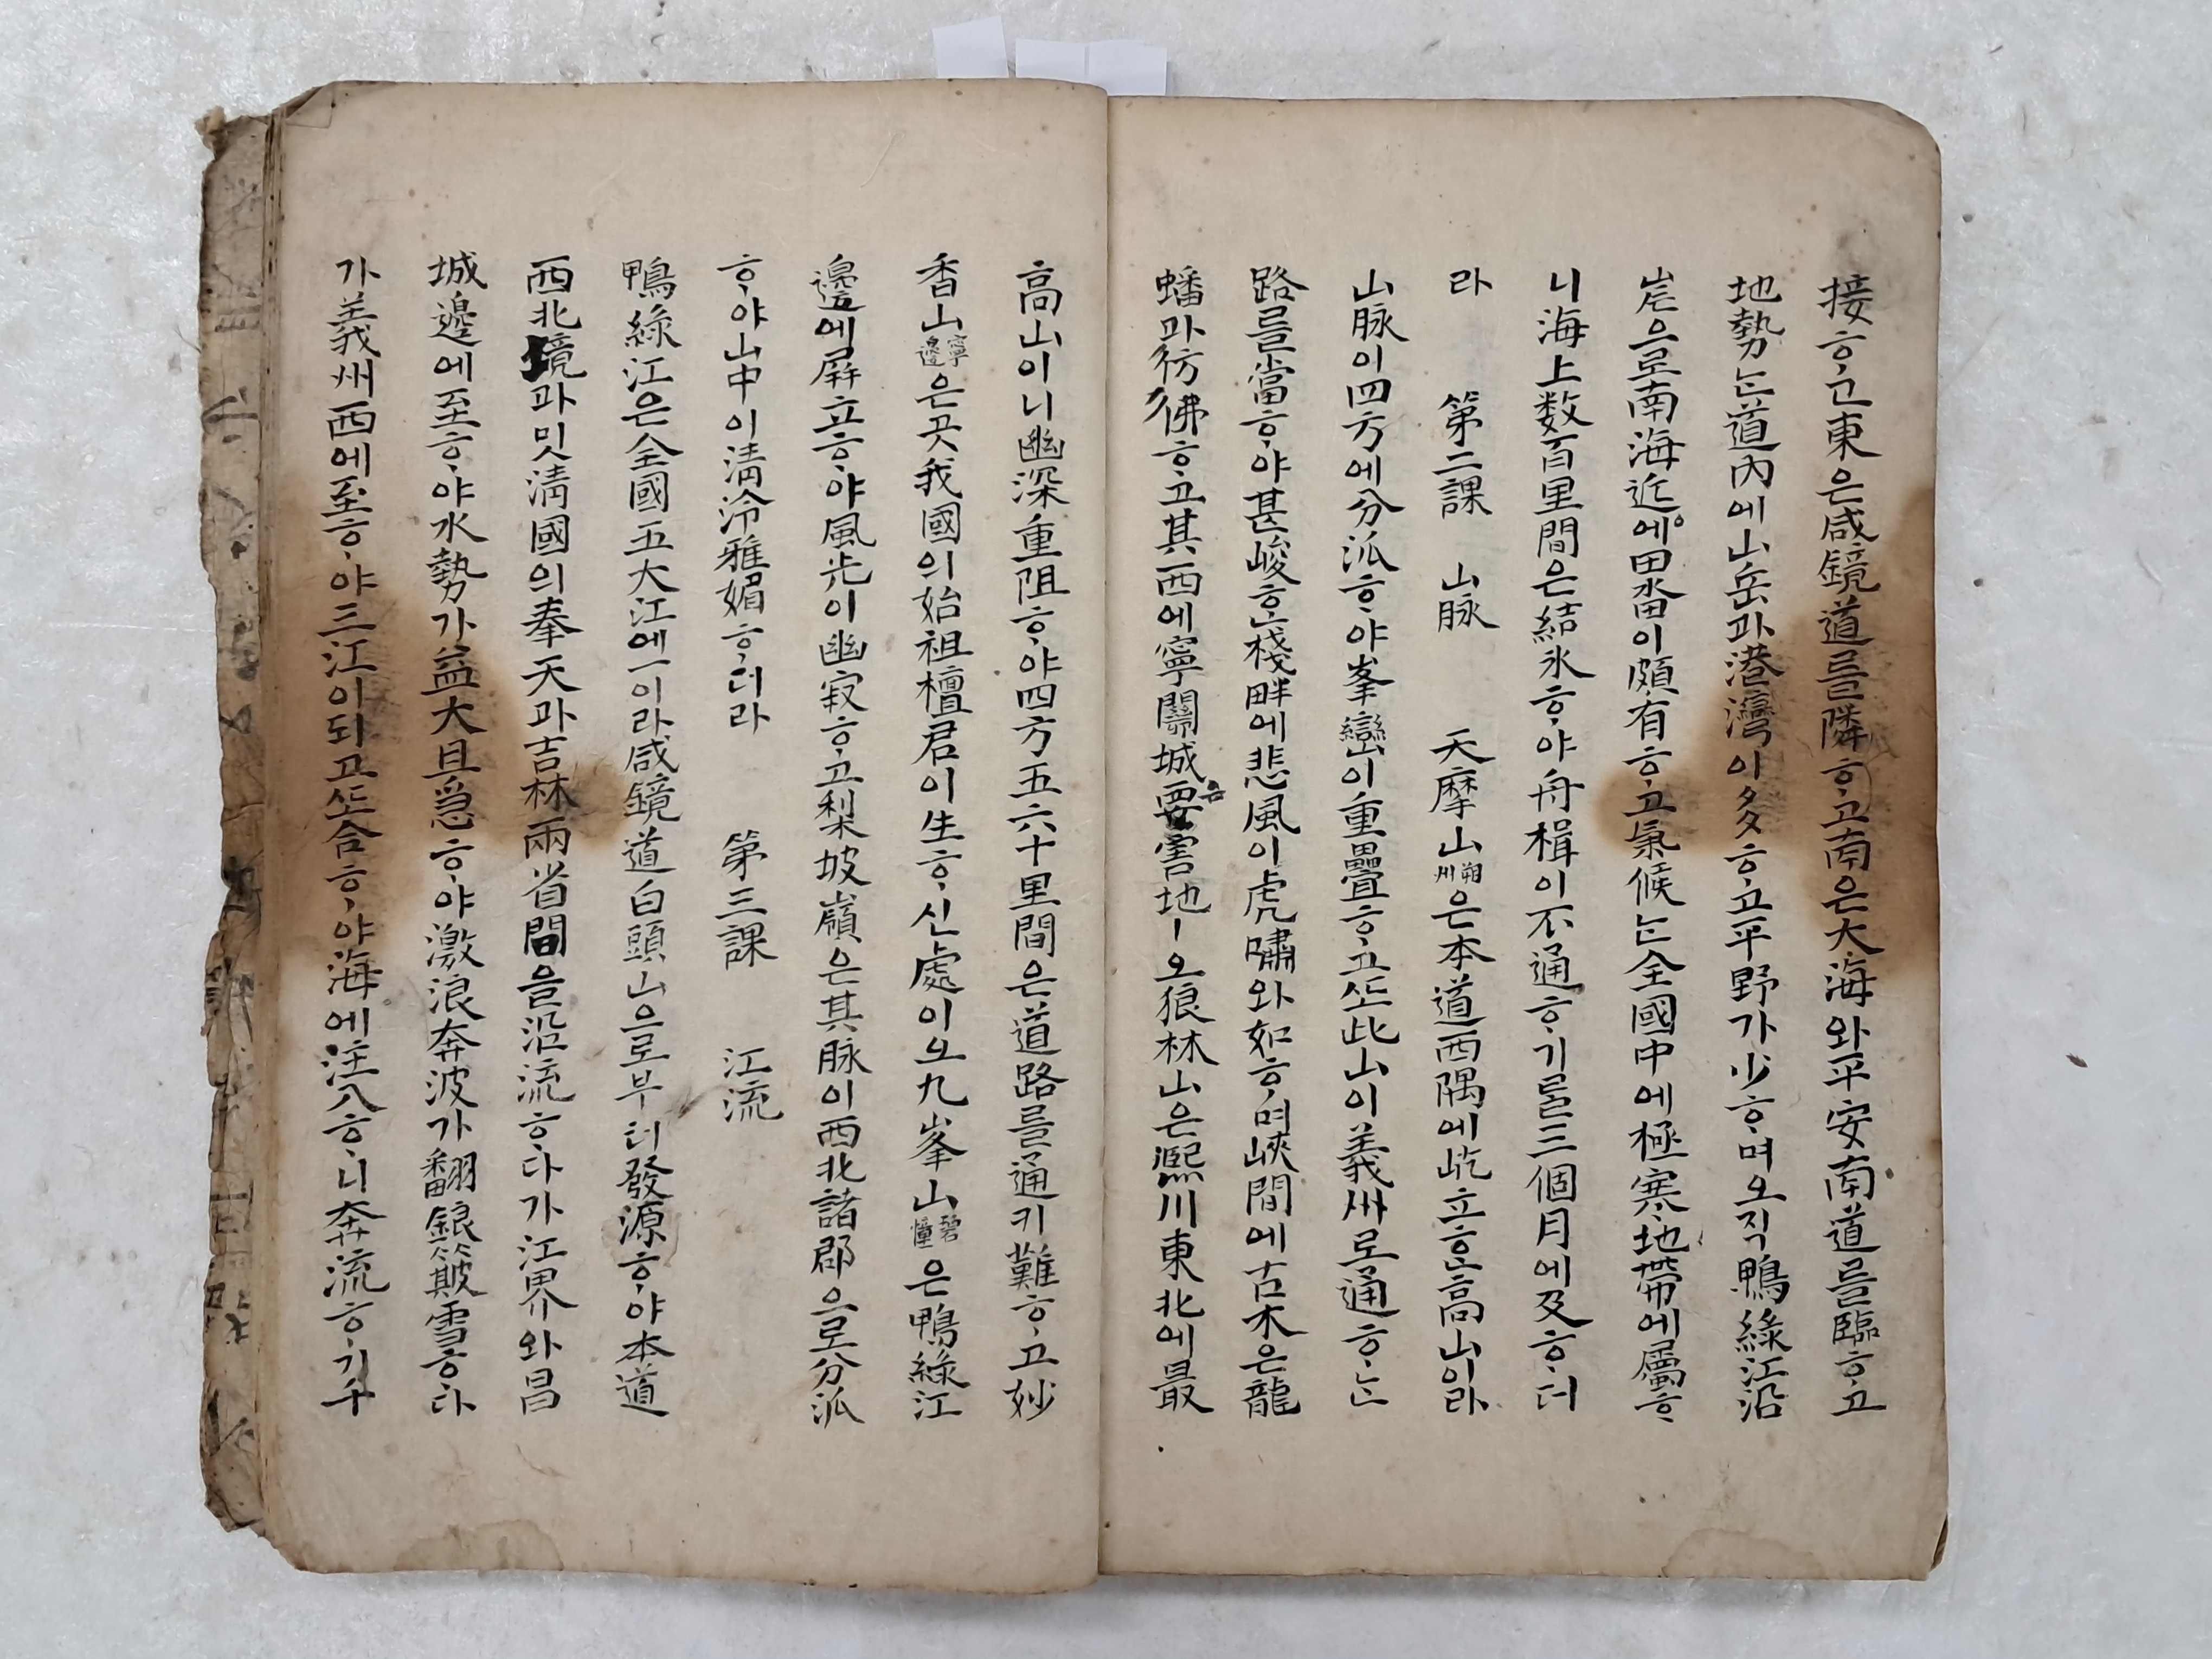 接ᄒᆞ고東은咸鏡道를隣ᄒᆞ고南은大海와平安南道를臨ᄒᆞ고
地勢ᄂᆞᆫ道內에山岳과港灣이多ᄒᆞ고平野가少ᄒᆞ며오직鴨綠江沿
岸으로南海近에田畓이頗有ᄒᆞ고氣候ᄂᆞᆫ全國中에極寒地帶에屬ᄒᆞ
니海上数百里間은結氷ᄒᆞ야舟楫이不通ᄒᆞ기를三個月에及ᄒᆞ더
라 第二課 山脉 天摩山朔州은本道西隅에屹立ᄒᆞᆫ高山이라
山脉이四方에分派ᄒᆞ야峯巒이重疊ᄒᆞ고ᄯᅩ此山이義州로通ᄒᆞᄂᆞᆫ
路를當ᄒᆞ야甚峻ᄒᆞᆫ棧畔에悲風이虎嘯와如ᄒᆞ며峽間에古木은龍
蟠과彷彿ᄒᆞ고其西에寧關城은要害地ㅣ오狼林山은熙川東北에最
高山이니幽深重阻ᄒᆞ야四方五六十里間은道路를通키難ᄒᆞ고妙
香山寧邊은곳我國의始祖檀君이生ᄒᆞ신處이오九峯山碧潼은鴨綠江
邊에屛立ᄒᆞ야風光이幽寂ᄒᆞ고梨坡嶺은其脉이西北諸郡으로分派
ᄒᆞ야山中이淸泠雅媚ᄒᆞ더라 第三課 江流
鴨綠江은全國五大江에一이라咸鏡道白頭山으로부터發源ᄒᆞ야本道
西北境과밋淸國의奉天과吉林兩省間을沿流ᄒᆞ다가江界와昌
城邊에至ᄒᆞ야水勢가益大且急ᄒᆞ야激浪奔波가翻銀簸雪ᄒᆞ다
가義州西에至ᄒᆞ야三江이되고ᄯᅩ合ᄒᆞ야海에注入ᄒᆞ니奔流ᄒᆞ기千